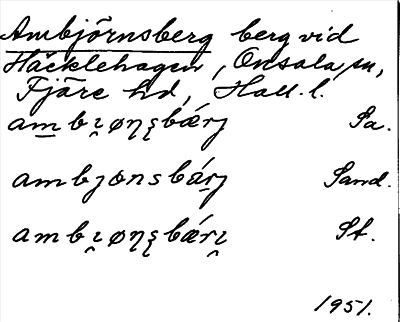 Ambjörnsberg berg vid
Häcklehagen, Onsala sn,
Fjäre hd, Hall. l.
ambi̯øn̨s̨bǽrj Sa.
ambjonsbǽrj Sand.
ambi̯øn̨s̨bǽri̯ St.
1951.